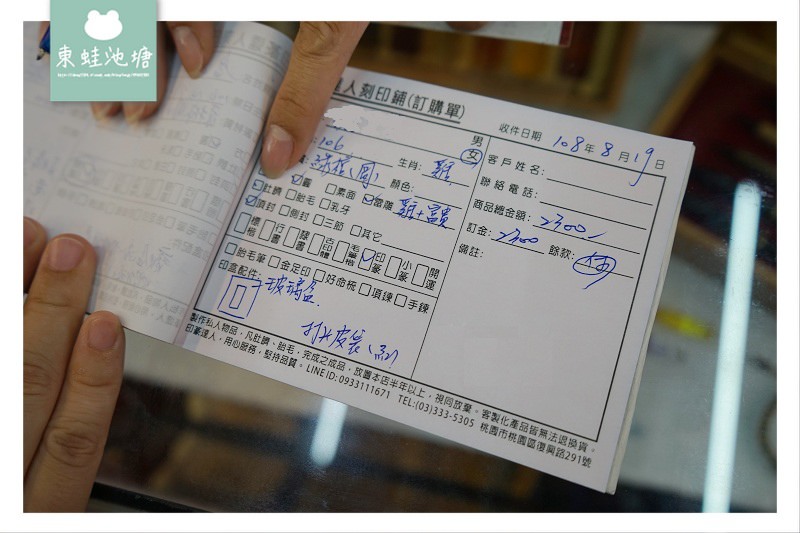 東蛙池塘
達人刻印鋪(訂購單)
收件日期 108年8月19日
男
女
客戶姓名:
聯絡電話:
商品總金額: 2300
訂金: 2300 餘款:
備註:
106
生肖: 雞
顏色:
肚臍 素面
胎毛 乳牙
頭封 側封 三節 其它
標楷 行書 隸書 古印體 毛筆楷 印篆 小篆 開運
胎毛筆 金足印 好命梳 項鍊 手鍊
印盒配件: 玻璃盒
打火皮套(紅)
製作私人物品,凡肚臍、胎毛,完成之成品,放置本店半年以上,視同放棄。客製化產品皆無法退換貨。
印篆達人,用心服務,堅持品質。LINE ID: 0933111671 TEL:(03)333-5305 桃園市桃園區復興路291號